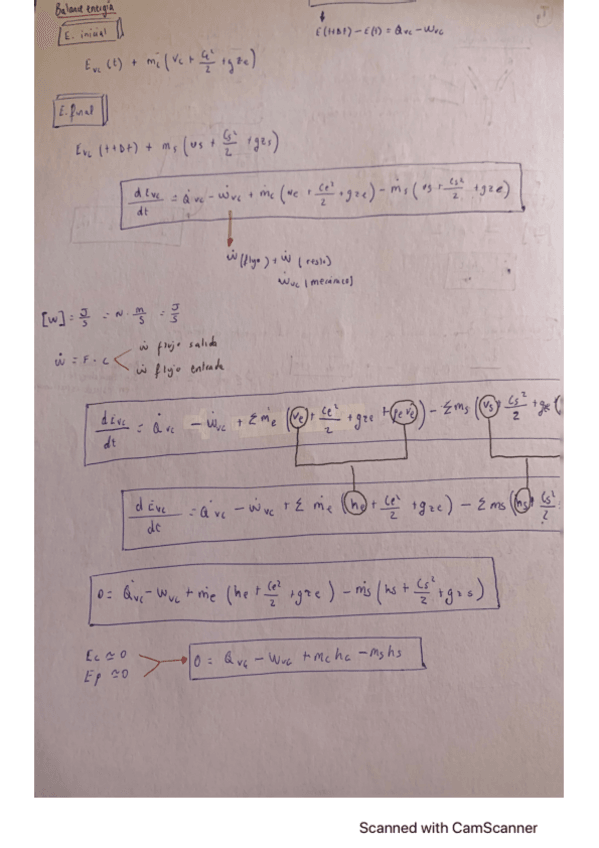 Balance energía
E. inicial
E(t+Dt) - E(t) = Qvc - Wvc
Evc (t) + me (ve + Ce²/2 + gze)
E. final
Evc (t+Dt) + ms (us + Cs²/2 + gzs)
dEvc/dt = Q̇vc - Ẇvc + ṁe (ue + Ce²/2 + gze) - ṁs (us + Cs²/2 + gze)
ẇ (flujo) + ẇ (resto)
ẇvc (mecánico)
[W] = J/s = N · m/s = J/s
ẇ = F · c
ẇ flujo salida
ẇ flujo entrada
dEvc/dt = Q̇vc - Ẇvc + Σ ṁe (ve + Ce²/2 + gze + peve) - Σ ms (vs + Cs²/2 + gze
dEvc/dt = Q̇vc - Ẇvc + Σ ṁe (he + Ce²/2 + gze) - Σ ms (hs + Cs²/2
0 = Q̇vc - Wvc + ṁe (he + Ce²/2 + gze) - ṁs (hs + Cs²/2 + gzs)
Ec ≃ 0
Ep ≃ 0
0 = Qvc - Wvc + mehe - mshs
Scanned with CamScanner